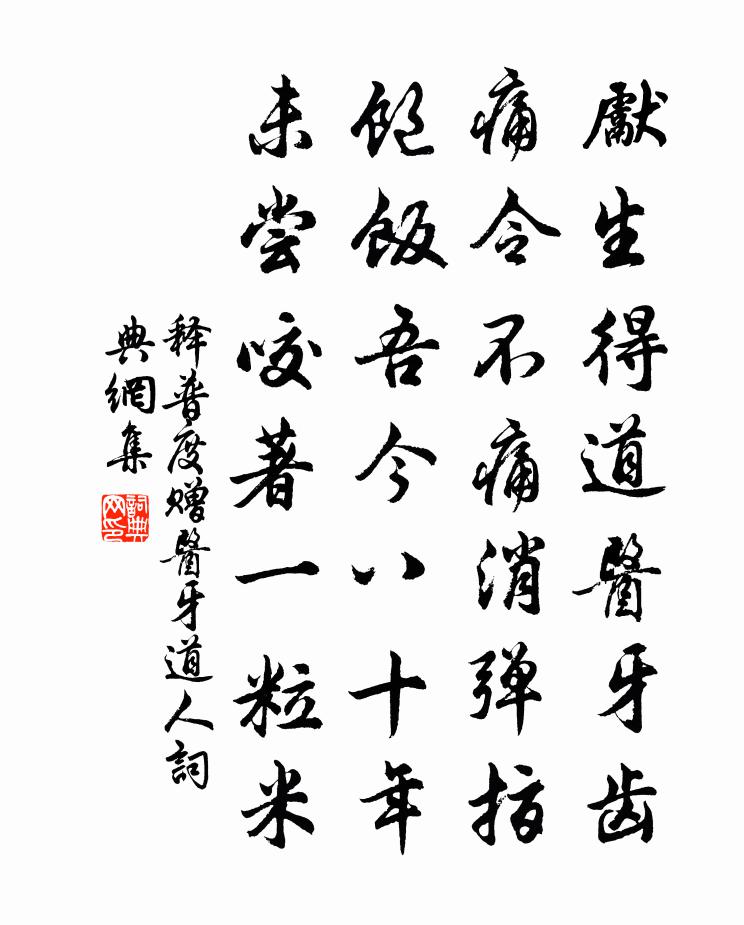 獻生得道醫牙齿
痛令不痛消弹指
飽飯吾今八十年
未尝咬著一粒米
释普度赠醫牙道人詞
典網集
詞典网印